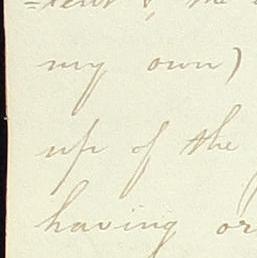 the
my own)
up of the
having or